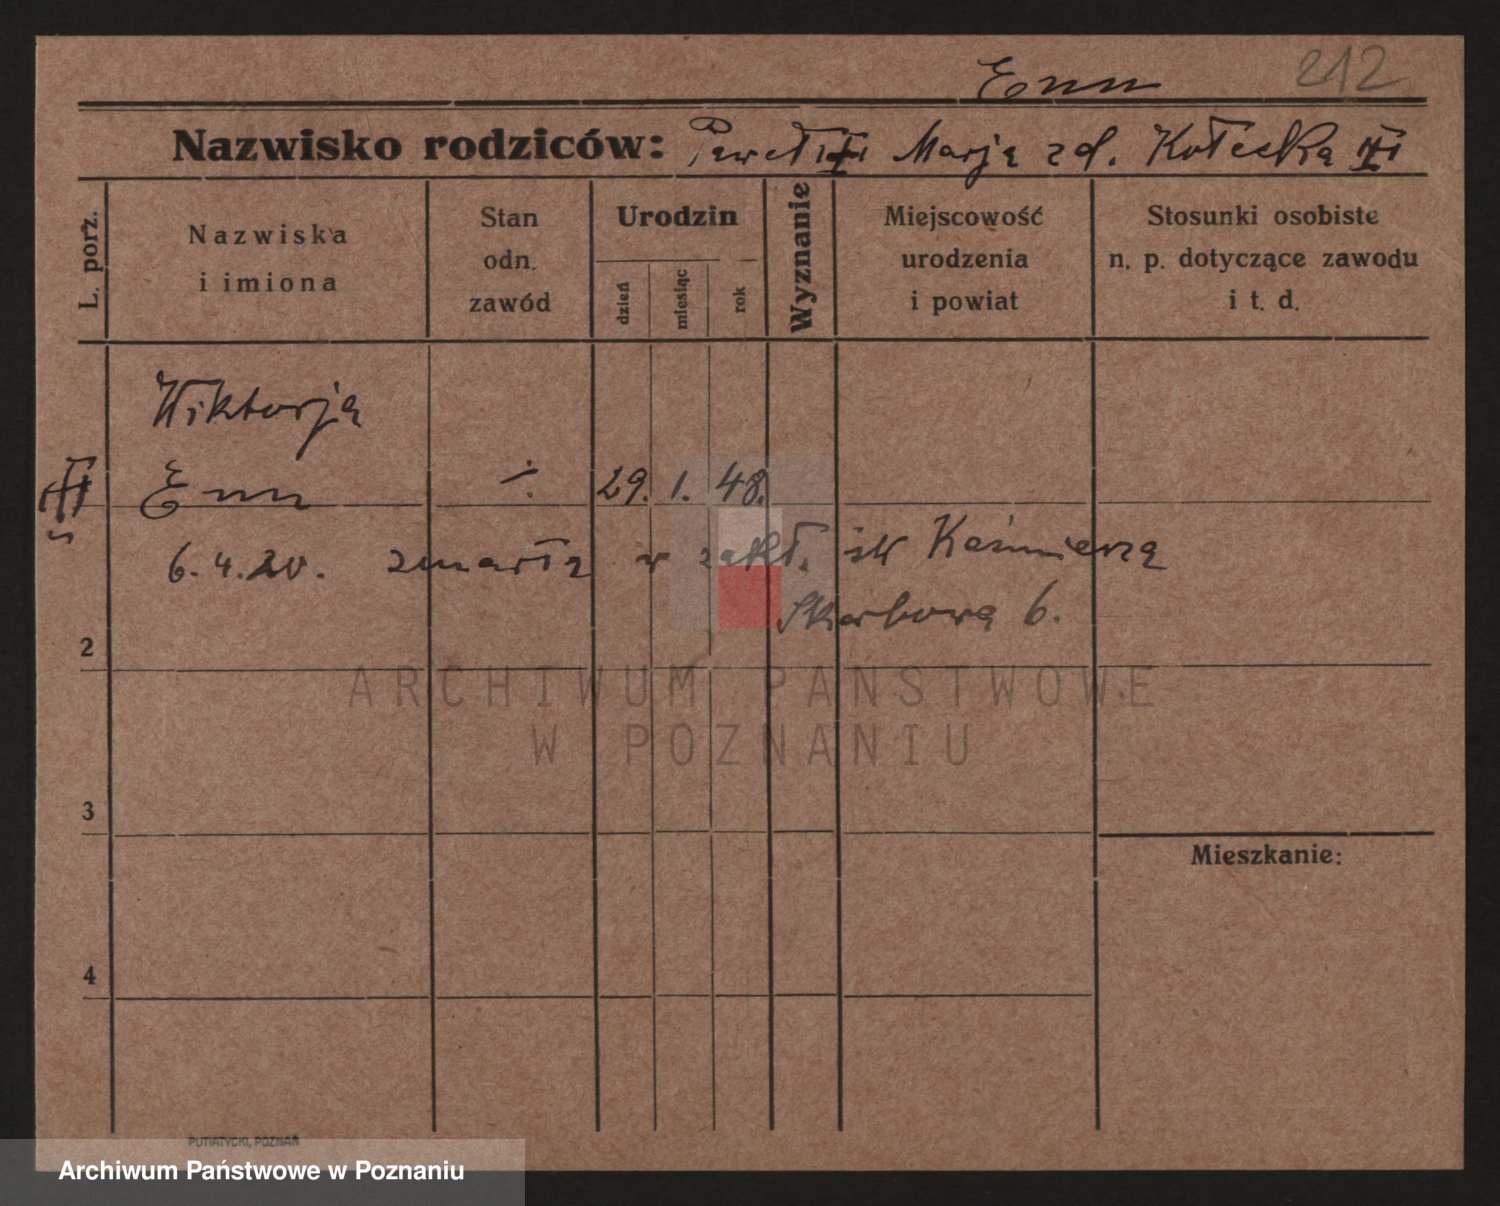 Enn 212
Nazwisko rodziców: Paweł Marja zd. Kołeska
L. porz.
Nazwiska
i imiona
Stan
odn.
zawód
Urodzin
dzień
miesiąc
rok
Wyznanie
Miejscowość
urodzenia
i powiat
Stosunki osobiste
n. p. dotyczące zawodu
i t. d.
Wiktorja
Enn ·/. 29. 1. 48.
6.4.20. zmarła w zakł. św Kaźmierza
Skarbowa 6.
2
ARCHIWUM PAŃSTWOWE
W POZNANIU
3
Mieszkanie:
4
PUTIATYCKI, POZNAŃ
Archiwum Państwowe w Poznaniu